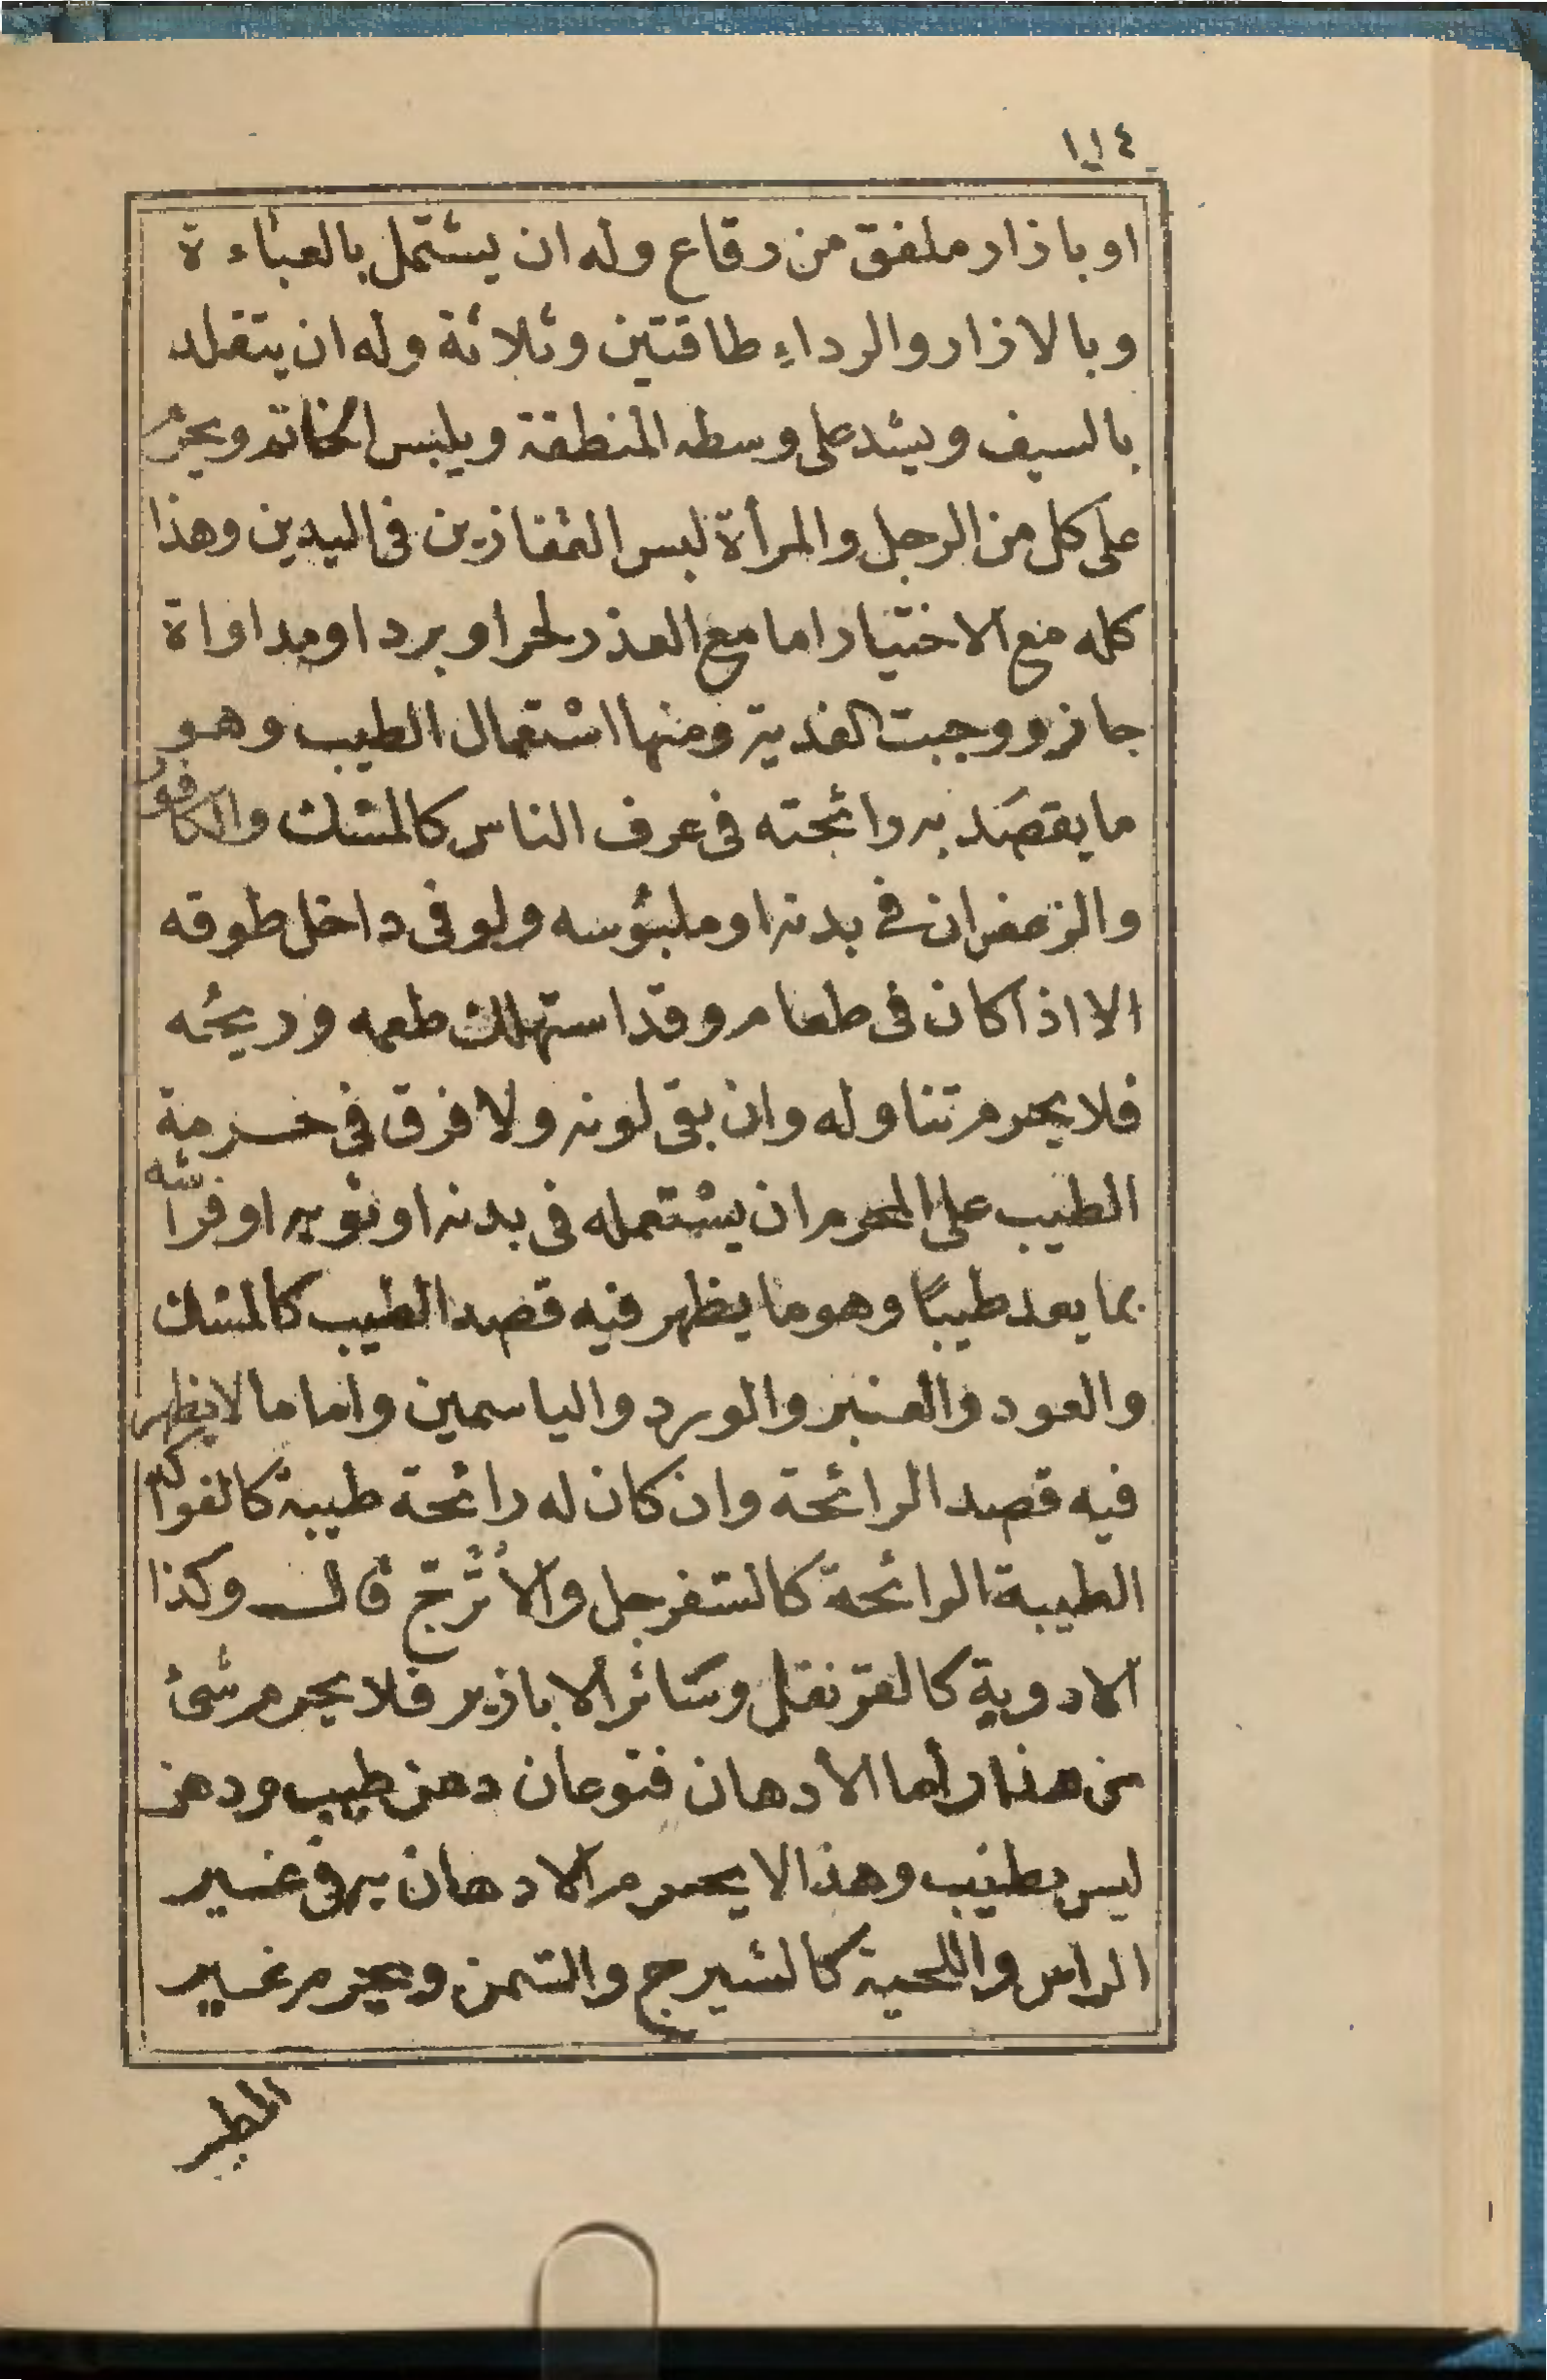 ١١٤
او بازار ملفق من رقاع وله ان يشتمل بالعباءة
وبالازار والرداء طاقتين وثلاثة وله ان يتقلد
بالسيف ويشد على وسطه المنطقة ويلبس الخاتم ويحرم
على كل من الرجل والمرأة لبس القفازين فى اليدين وهذا
كله مع الاختيار اما مع العذر لحر او برد او مداواة
جاز ووجبت الفدية ومنها استعمال الطيب وهو
ما يقصد به رائحته فى عرف الناس كالمسك والكافور
والزعفران فى بدنه او ملبوسه ولو فى داخل طوقه
الا اذا كان فى طعام وقد استهلك طعمه وريحه
فلا يحرم تناوله وان بقى لونه ولا فرق فى حرمة
الطيب على المحرم ان يستعمله فى بدنه او ثوبه او فراشه
بما يعد طيبًا وهو ما يظهر فيه قصد الطيب كالمسك
والعود والعنبر والورد والياسمين واما ما لا يظهر
فيه قصد الرائحة وان كان له رائحة طيبة كالفواكه
الطيبة الرائحة كالسفرجل والأُتْرُجّ قال وكذا
الادوية كالقرنفل وسائر الابازير فلا يحرم شئ
من هذا واما الأدهان فنوعان دهن طيب ودهن
ليس بطيب وهذا لا يحرم الادهان به فى غير
الراس واللحية كالشيرج والسمن ويحرم غير
المطيب